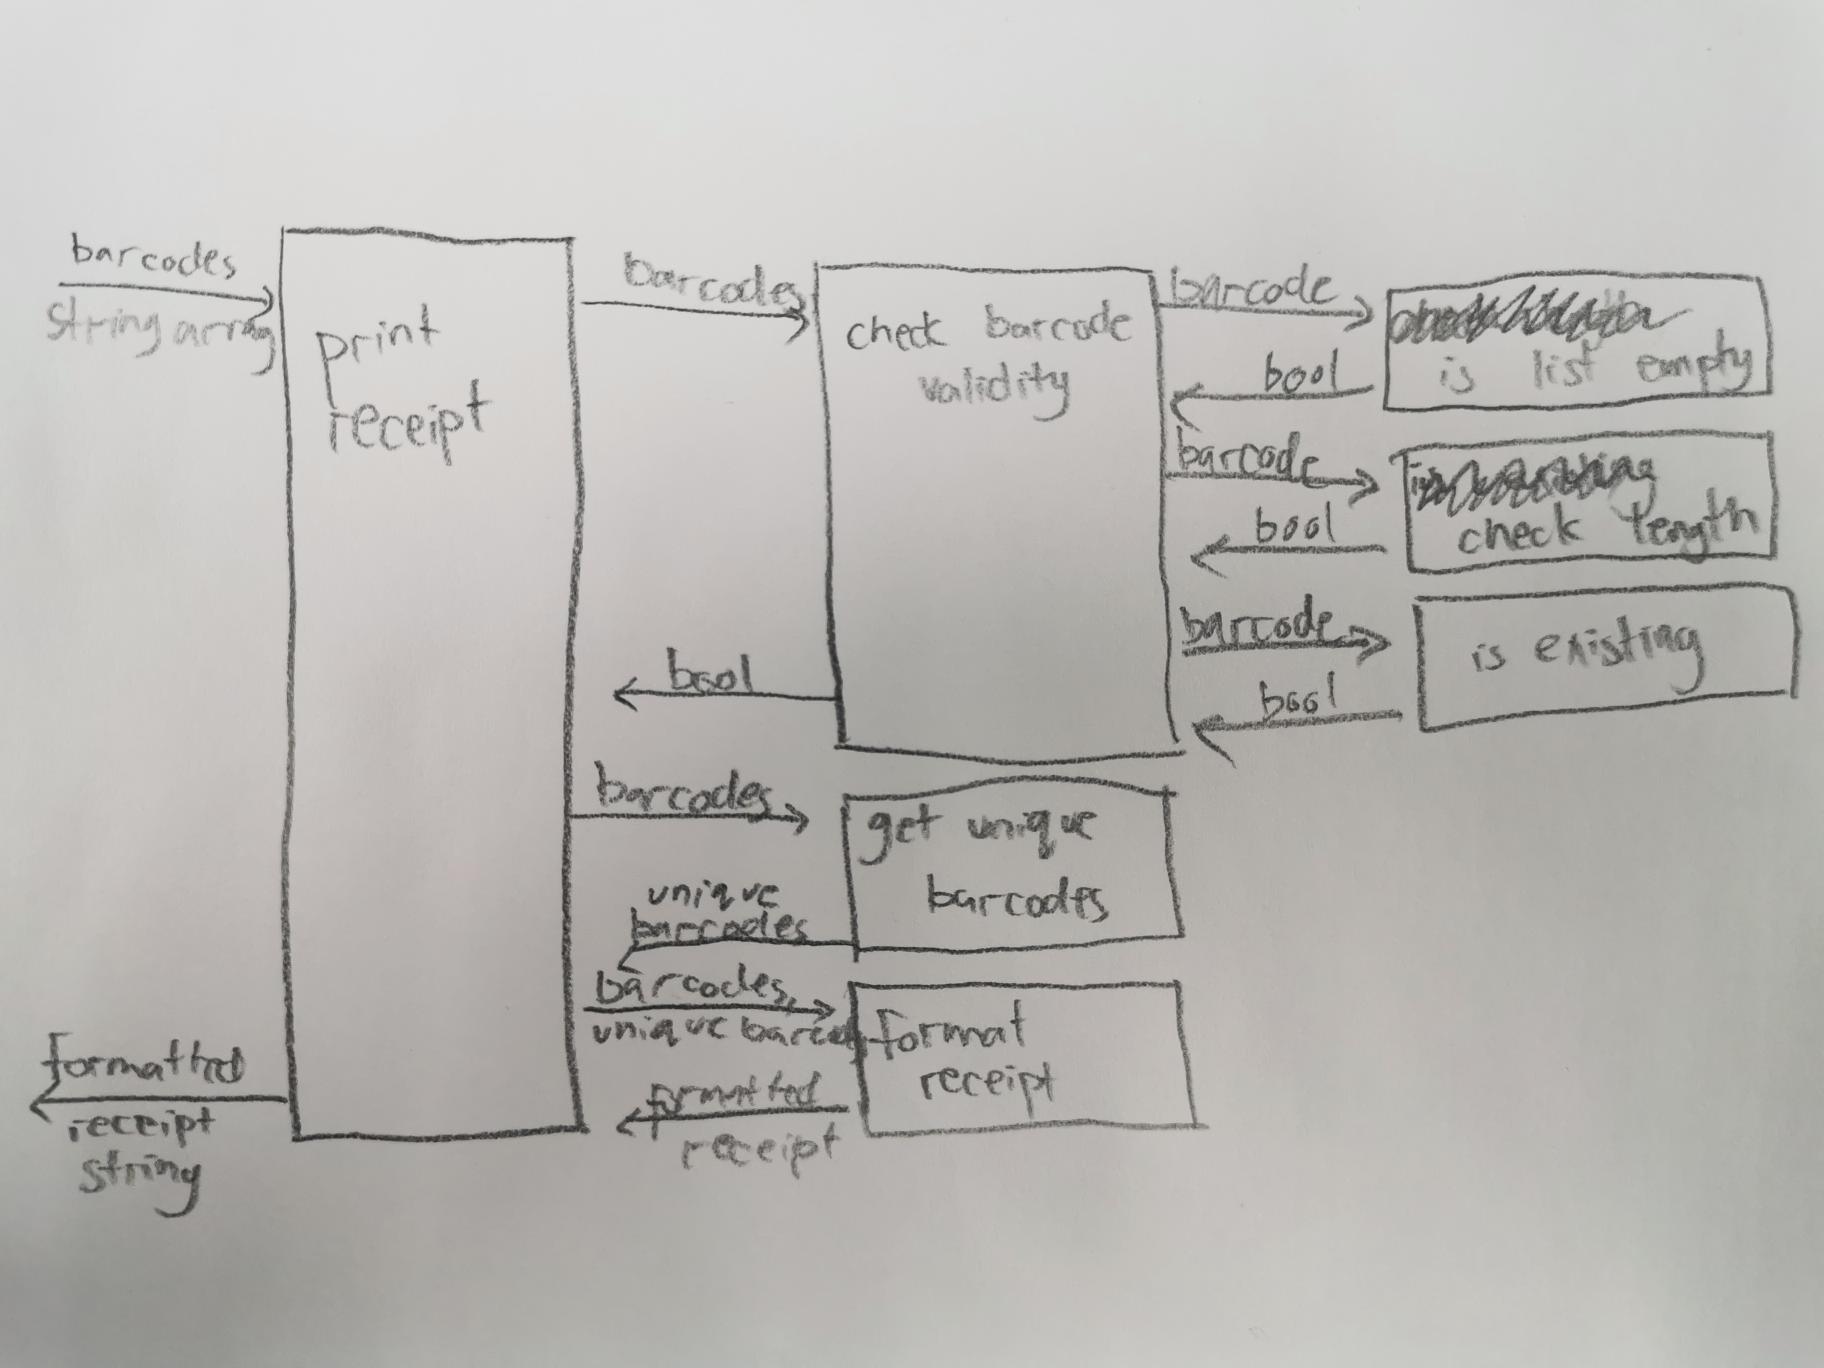 barcodes
string array
print
receipt
barcodes
check barcode
validity
barcode
is list empty
bool
barcode
check length
bool
barcode
is existing
bool
bool
barcodes
get unique
barcodes
unique
barcodes
barcodes,
unique barcodes
format
receipt
formatted
receipt
formatted
receipt
string